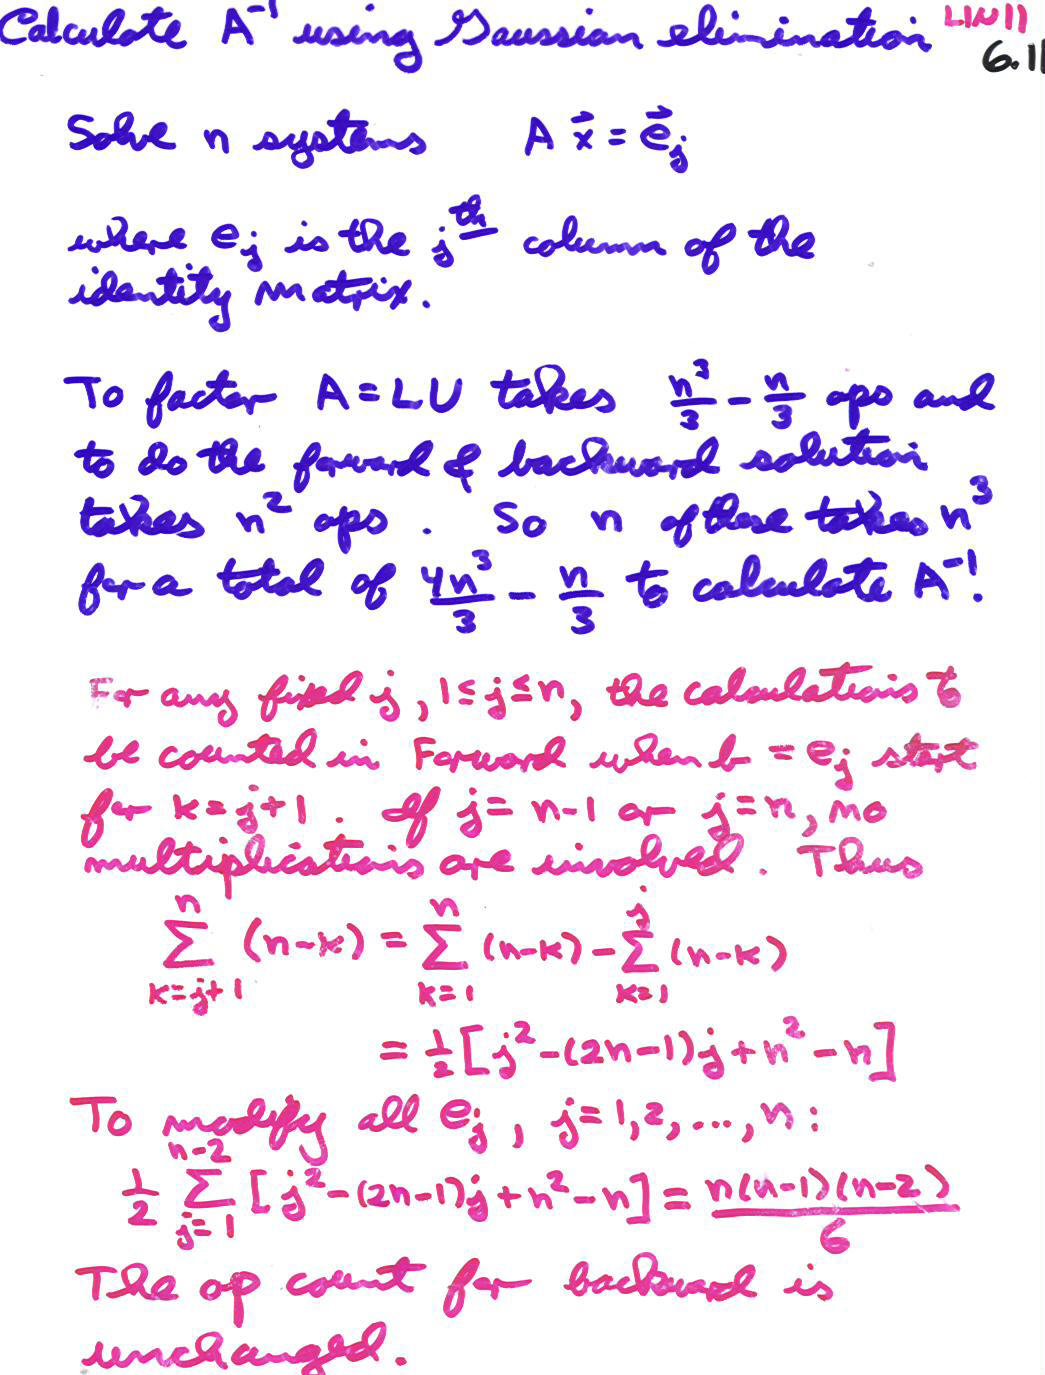 Calculate A⁻¹ using Gaussian elimination LIN11
6.11
Solve n systems A x⃗ = e⃗ⱼ
where eⱼ is the j th column of the
identity matrix.
To factor A = LU takes n³/3 - n/3 ops and
to do the forward & backward solution
takes n² ops. So n of these takes n³
for a total of 4n³/3 - n/3 to calculate A⁻¹.
For any fixed j, 1≤j≤n, the calculations to
be counted in Forward when b = eⱼ start
for k=j+1. If j=n-1 or j=n, no
multiplications are involved. Thus
∑_{k=j+1}^{n} (n-k) = ∑_{k=1}^{n} (n-k) - ∑_{k=1}^{j} (n-k)
= 1/2 [j² - (2n-1)j + n² - n]
To modify all eⱼ, j=1,2,...,n:
1/2 ∑_{j=1}^{n-2} [j² - (2n-1)j + n² - n] = n(n-1)(n-2)/6
The op count for backward is
unchanged.